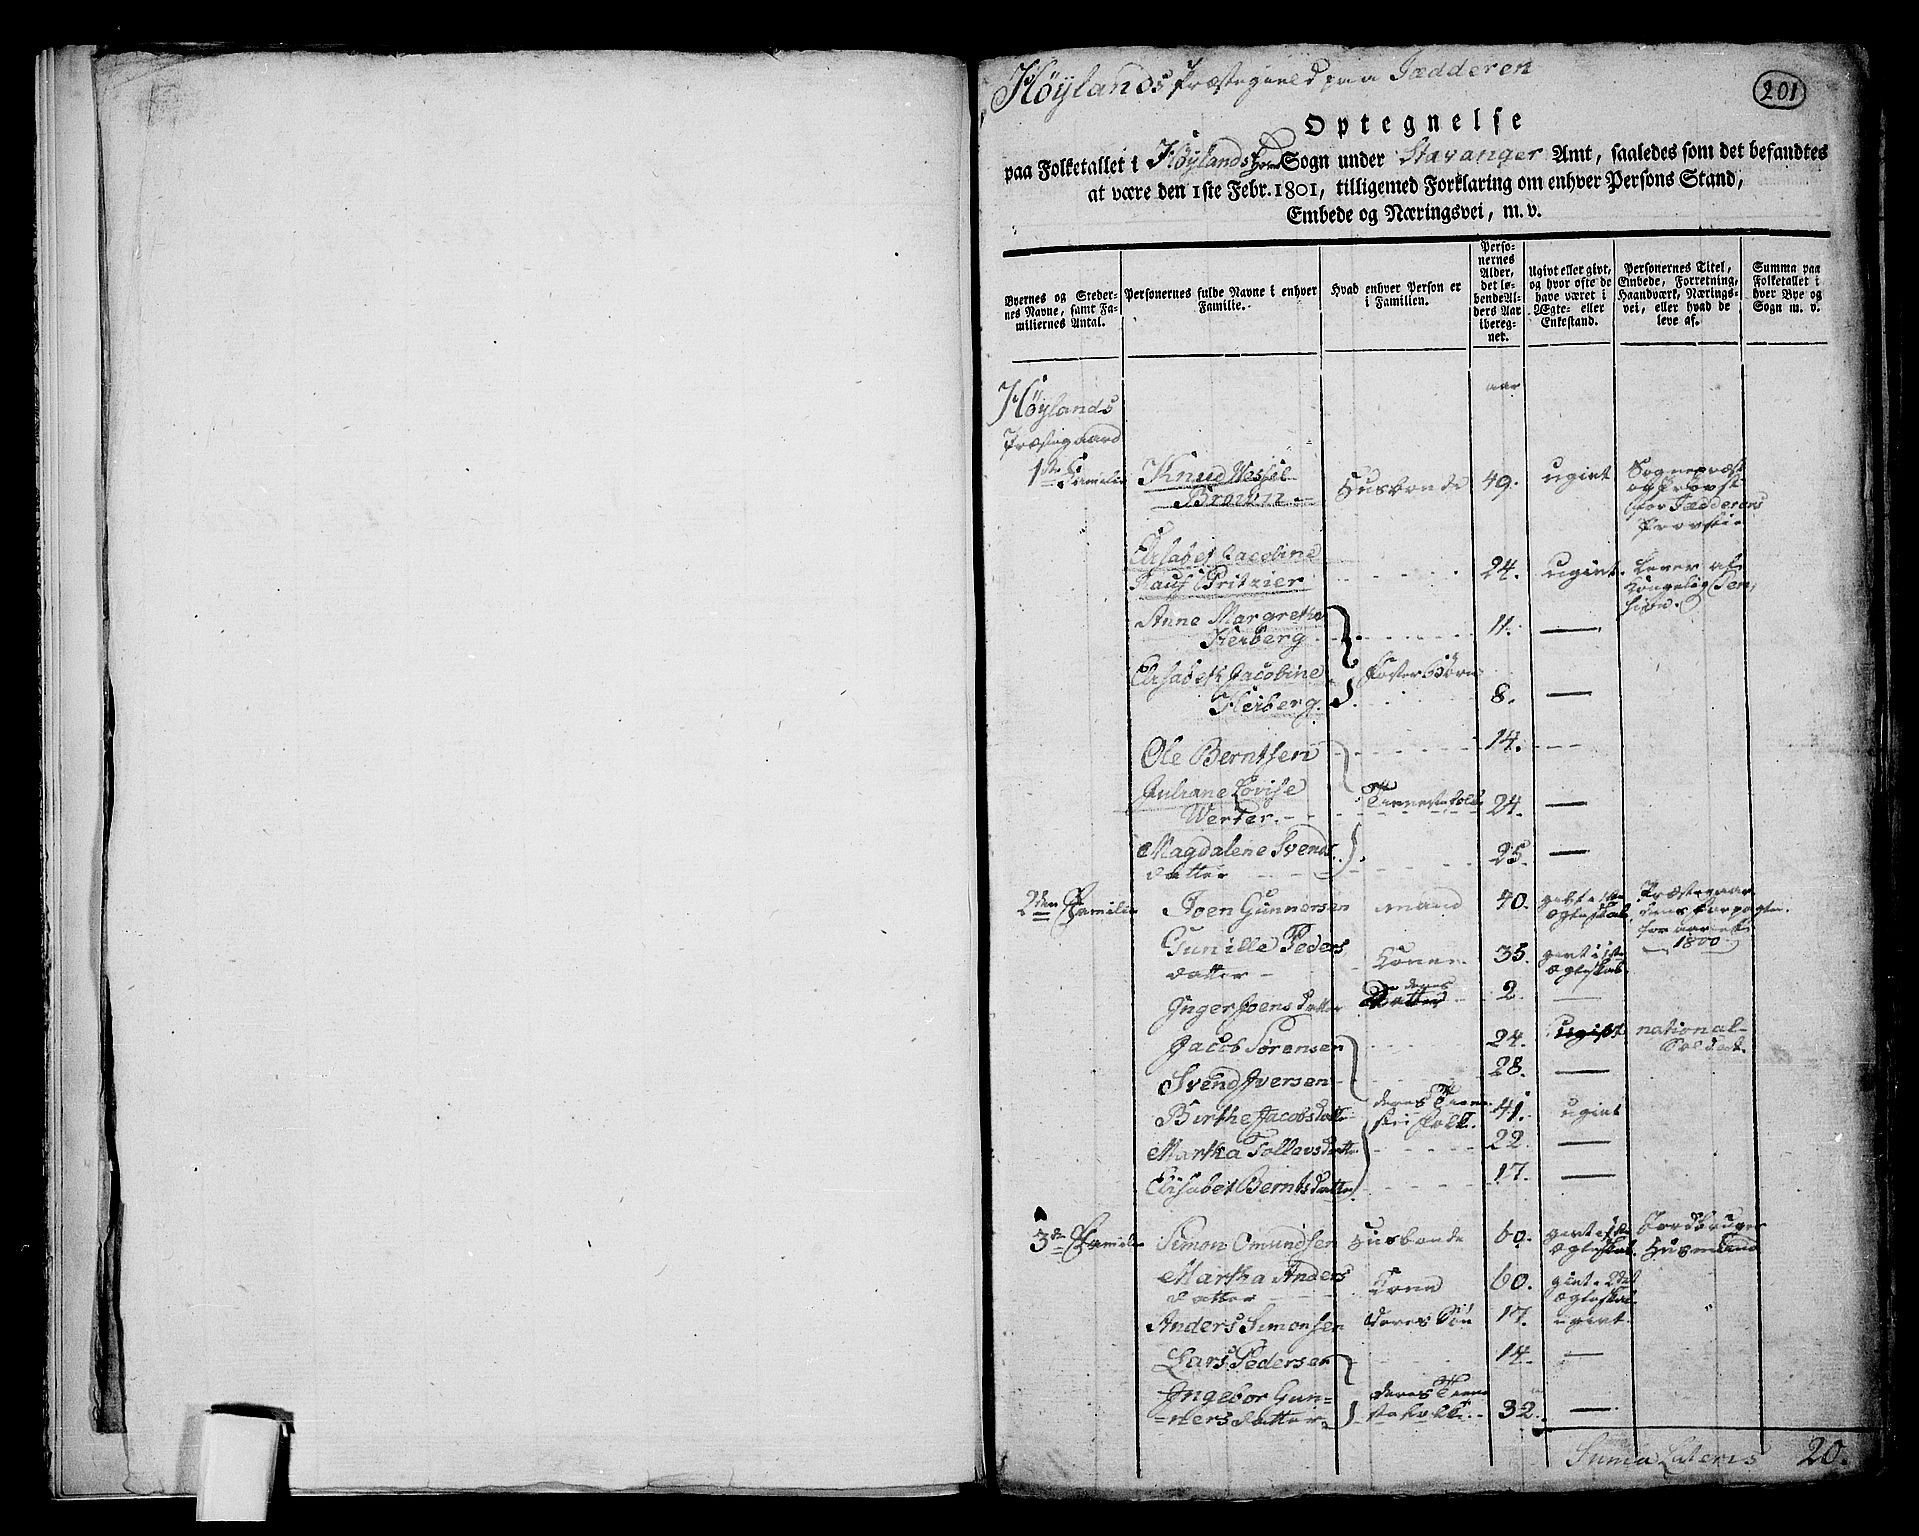 Höylands Præstegield paa Jædderen
201
Optegnelse
paa Folketallet i Höylands Hoved Sogn under Stavanger Amt, saaledes som det befandtes
at være den 1ste Febr. 1801, tilligemed Forklaring om enhver Persons Stand,
Embede og Næringsvei, m. v.
Byernes og Steder-
nes Navne, samt Fa-
miliernes Antal.
Personernes fulde Navne i enhver
Familie.
Hvad enhver Person er
i Familien.
Perso-
nernes
Alder,
det lø-
bende Al-
ders Aar
ibereg-
net.
Ugivt eller givt,
og hvor ofte de
have været i
Ægte- eller
Enkestand.
Personernes Titel,
Embede, Forretning,
Haandværk, Nærings-
vei, eller hvad de
leve af.
Summa paa
Folketallet i
hver Bye og
Sogn m. v.
aar
Höylands
Præstegaard
1ste Familie Knud Wessel Husbonde 49. ugivt Sognepræst
Brown og Provst
for Jædderens
Provstie
Elisabet Jacobine
Rauf Pritzier 24. ugivt. Lever af
Kongelig Pen,
sion.
Anne Margrethe 11. —
Herberg
Elisabeth Jacobine Foster Børn
Herberg. 8. —
Ole Berntsen 14. —
Juliane Lovise Tienestefolk 24. —
Werter.
Magdalene Svends 25. —
datter
2den Familie Joen Gunnersen mand 40. givt i 1ste Præstegaar
Ægteskab dens forpagter
for aaret
1800
Gunille Peders Kone 35. givt i 1ste
datter Ægteskab.
Inger Joens datter deres Datter 2. —
Jacob Sørensen 24. ugift national-
Soldat.
Svend Iversen 28. —
Birthe Jacobsdatter deres Tiene 41. ugivt
ste folk.
Martha Tollevsdatter 22. —
Elisabet Berntsdatter 17. —
3die Familie Simon Omundsen Husbonde 60. givt i 1ste Jordbruger
Ægteskab. Husmand
Martha Anders Kone 60. givt i 2det
datter Ægteskab
Anders Simonsen deres Søn 17. ugivt
Lars Pedersen 14. —
Ingebor Gun- deres Tiene
-nersdatter stefolk. 32. —
Suma Lateris 20.